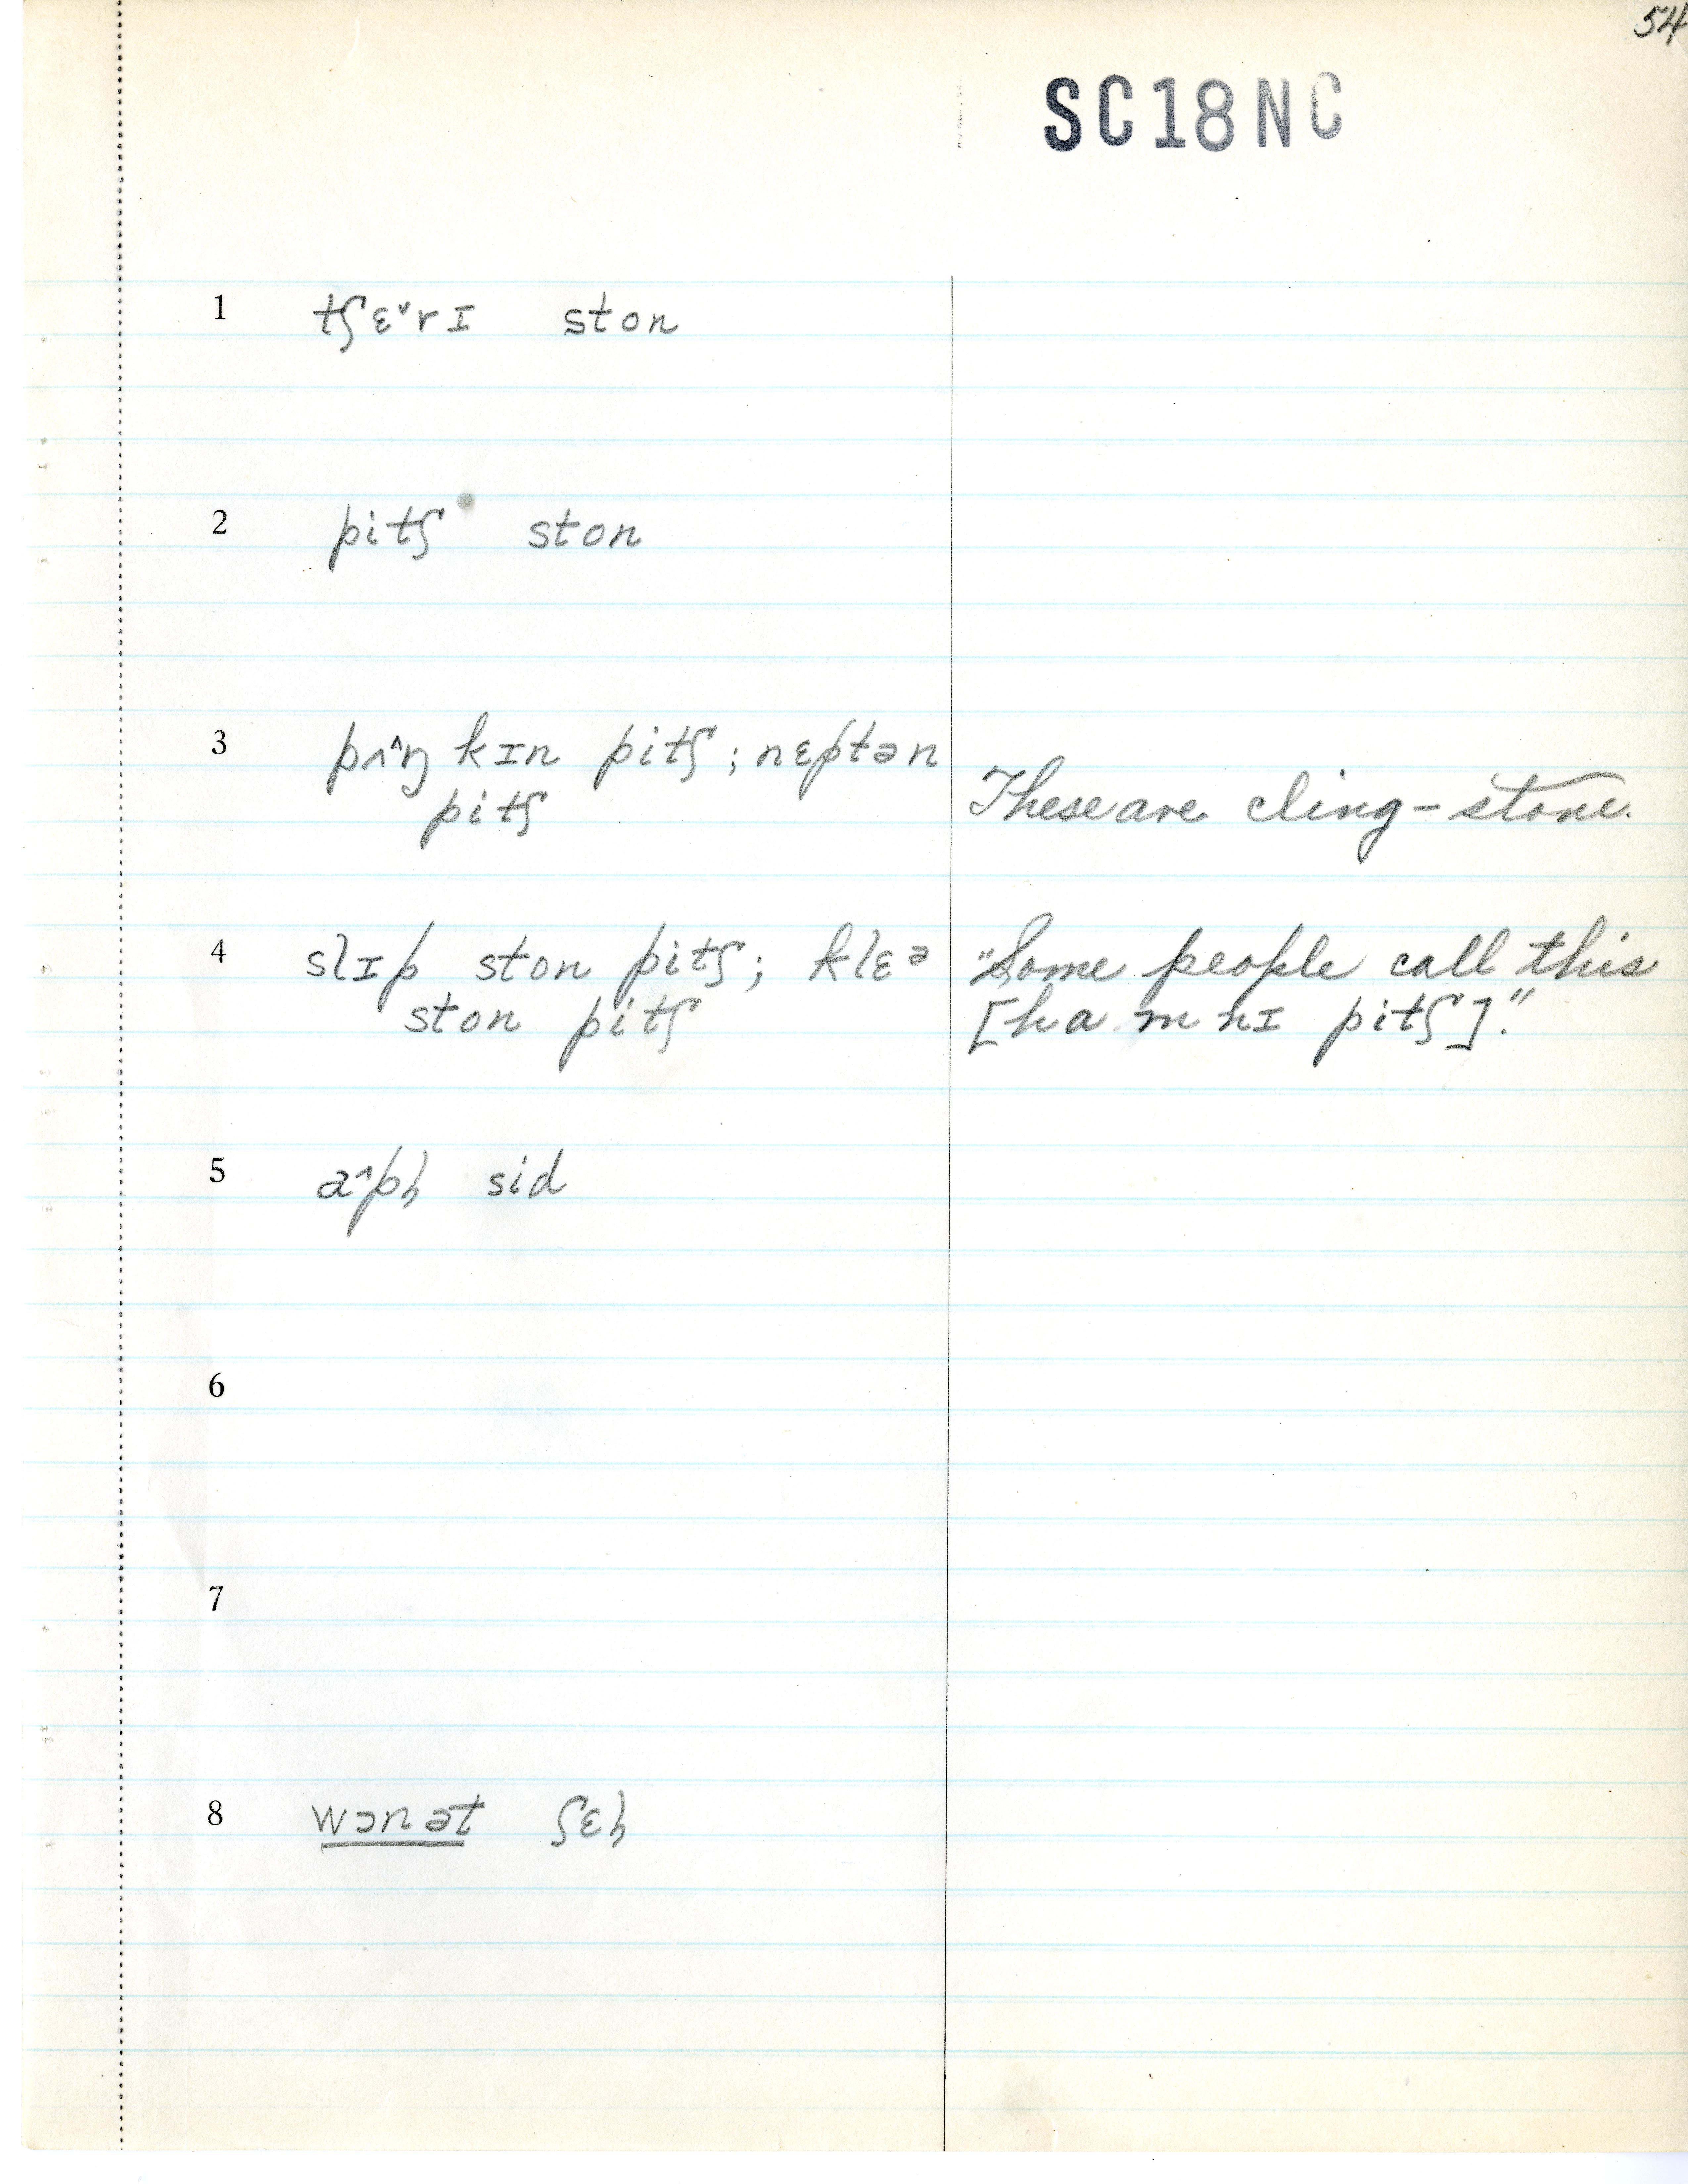 54
SC18NC
1 tʃɛ˅rɪ ston
2 pitʃ ston
3 pʌ^ŋkɪn pitʃ; nɛptən
pitʃ These are cling-stone.
4 slɪp ston pitʃ; klɛə "Some people call this
ston pitʃ [hamnɪ pitʃ]."
5 a^pl̩ sid
6
7
8 wɔnət ʃɛl̩